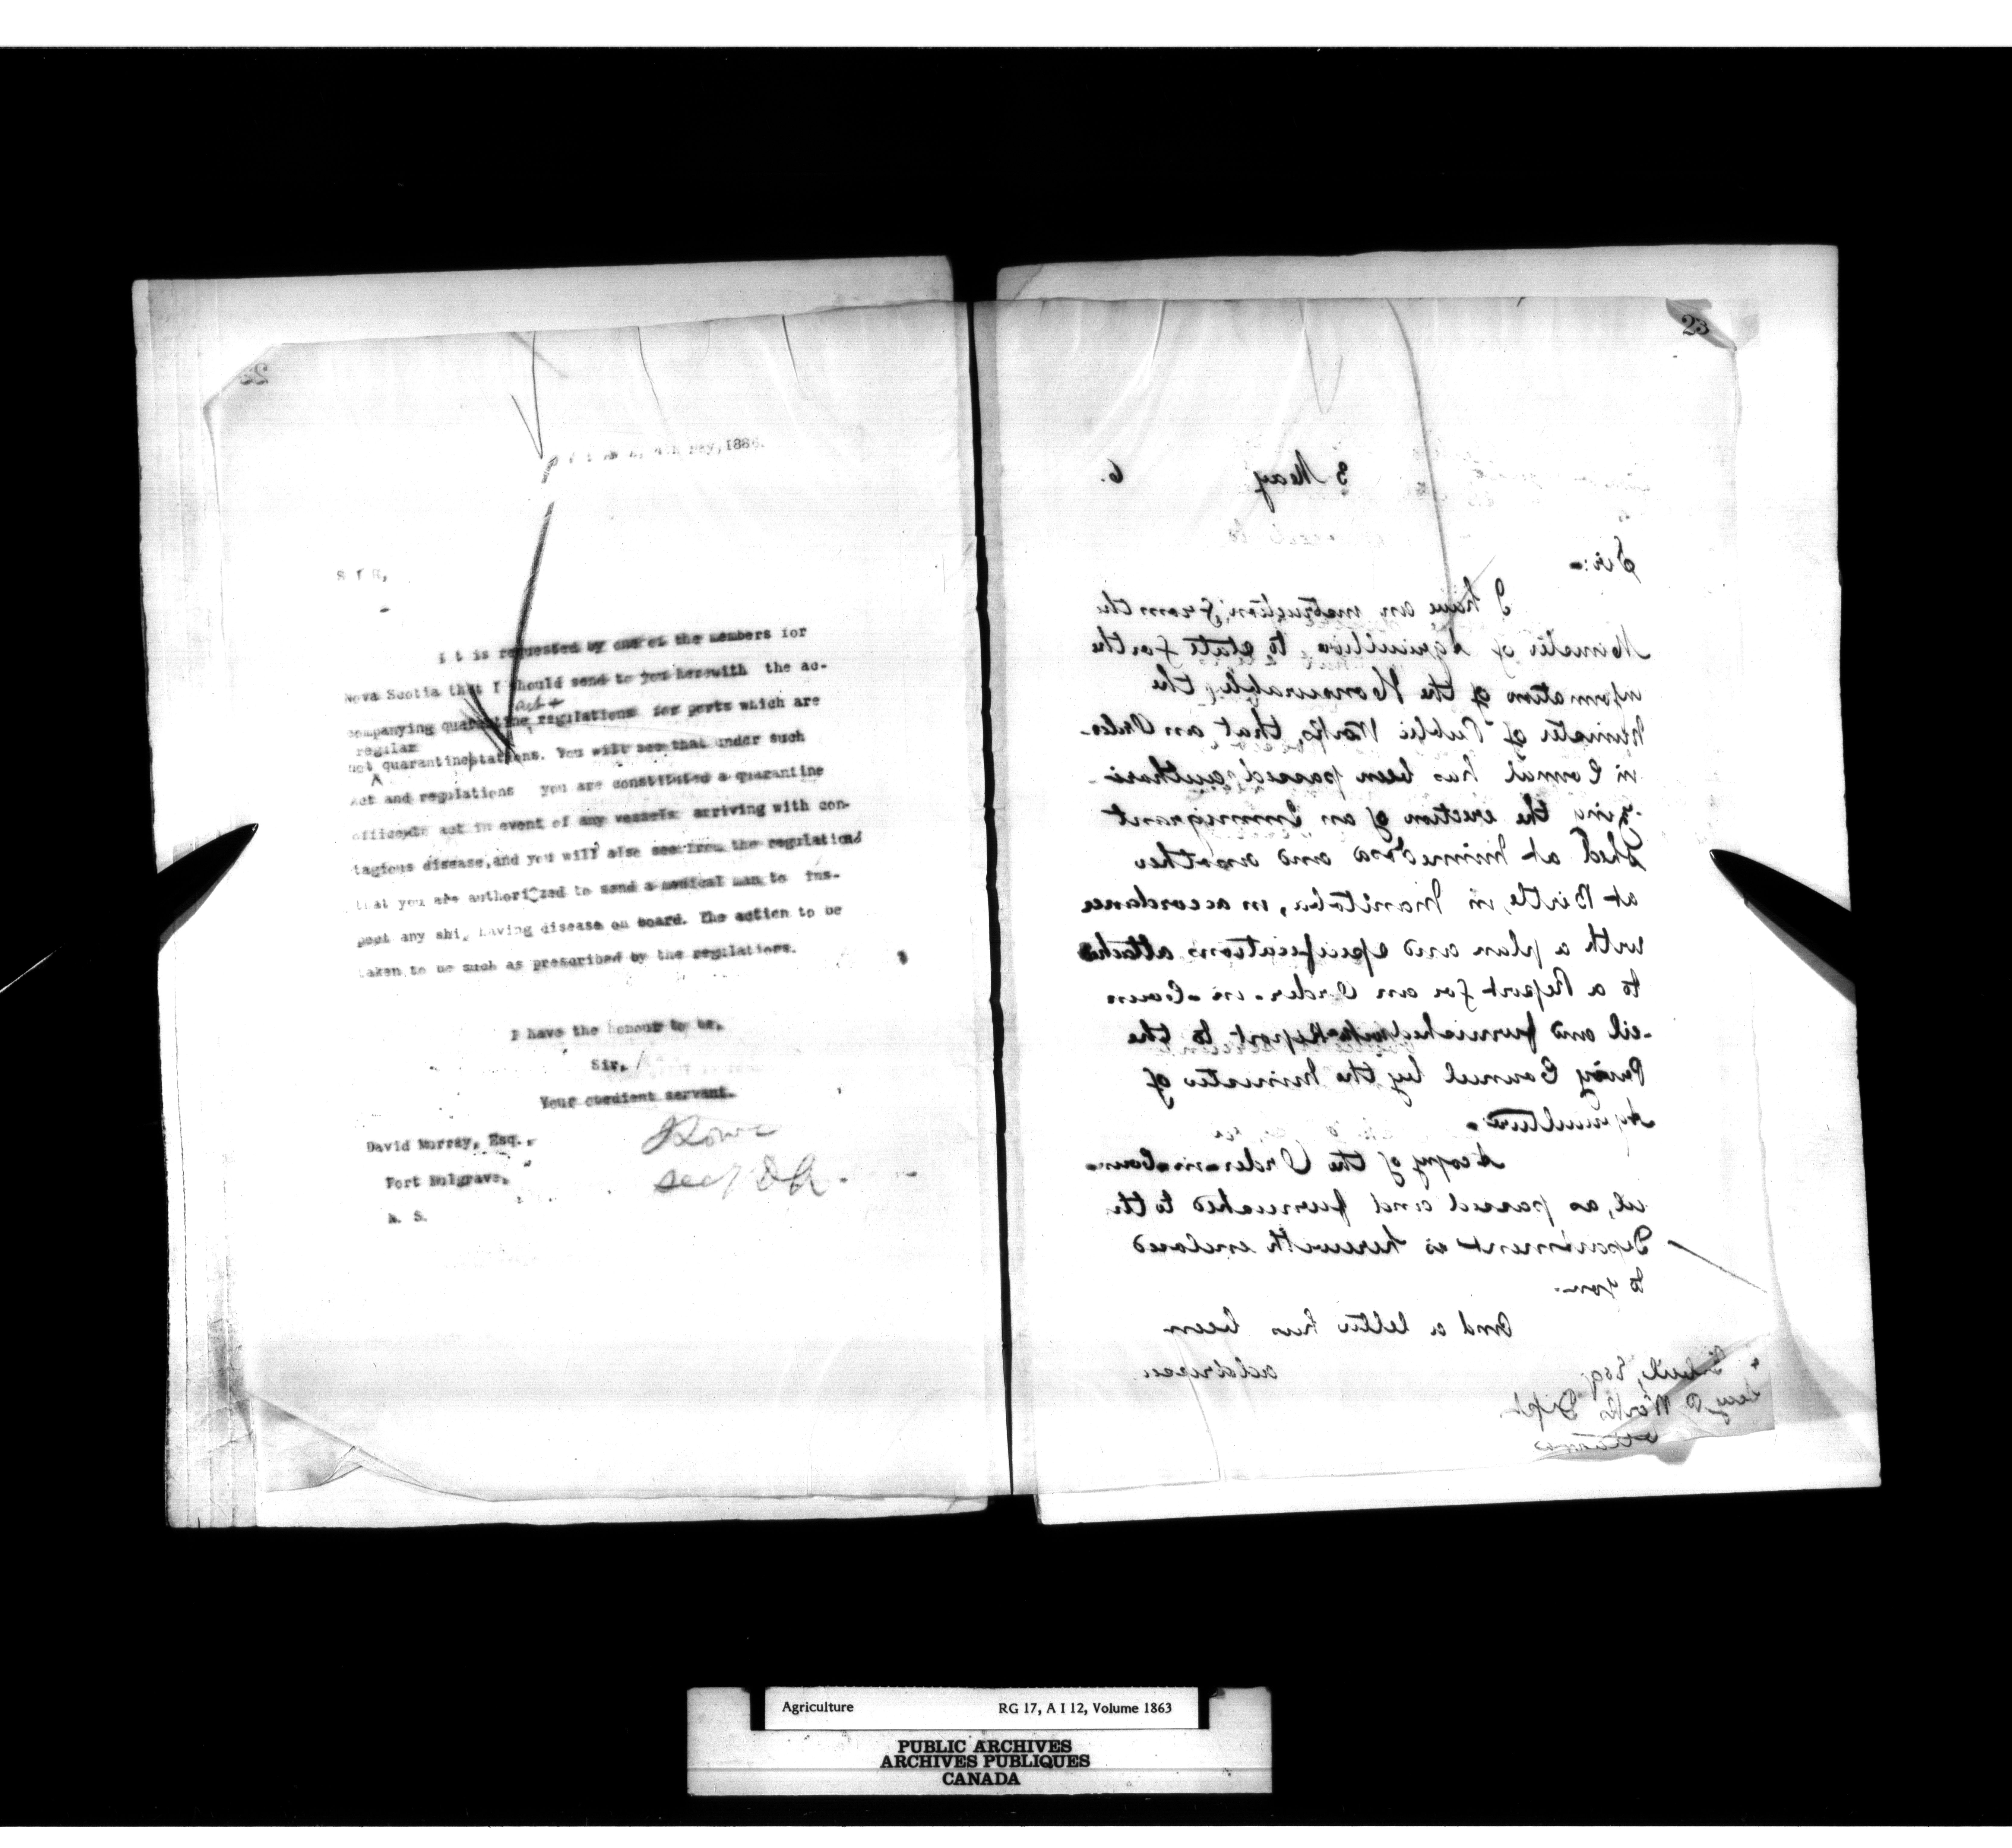 4th May, 1886.
SIR,
It is requested by one of the members for
Nova Scotia that I should send to you herewith the ac-
Act &
companying quarantine regulations for ports which are
regular
not quarantine stations. You will see that under such
Act and regulations you are constituted a quarantine
officer to act in event of any vessels arriving with con-
tagious disease, and you will also see from the regulations
that you are authorized to send a medical man to ins-
pect any ship having disease on board. The action to be
taken to be such as prescribed by the regulations.
I have the honour to be,
Sir,
Your obedient servant.
J Lowe
Secy D A.
David Murray, Esq.,
Port Mulgrave,
N. S.
23
3 May 6.
Sir:-
I have an instruction from the
Minister of Agriculture to state for the
information of the Honourable, the
Minister of Public Works, that an Order
in Council has been passed authori-
zing the erection of an Immigrant
Shed at Minnedosa and another
at Birtle, in Manitoba, in accordance
with a plan and specifications attached
to a Report for an Order-in-Coun
-cil and furnished with Report to the
Privy Council by the Minister of
Agriculture.
A copy of the Order-in-Coun-
cil, as passed and furnished to th
Department is herewith enclosed
to you.
And a letter has been
addressed
Esq.
Secy P Works Dept.
Ottawa
Agriculture RG 17, A I 12, Volume 1863
PUBLIC ARCHIVES
ARCHIVES PUBLIQUES
CANADA